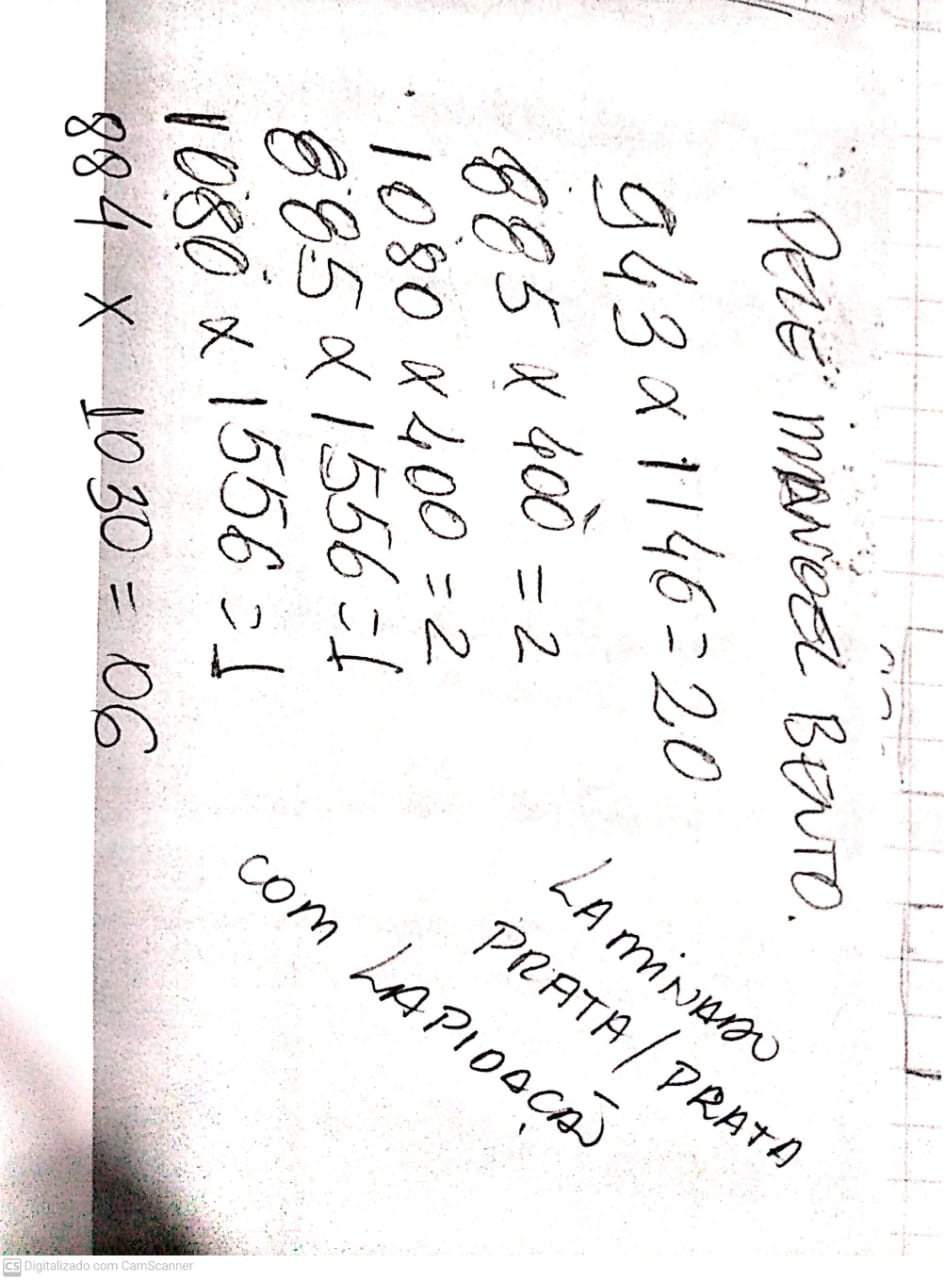 MANOEL BENTO.
943 x 1146 = 20
885 x 400 = 2
1080 x 400 = 2
885 x 1556 = 1
1080 x 1556 = 1
884 x 1030 = 06
LAMINADO
PRATA / PRATA
COM LAPIDAÇÃO
CS Digitalizado com CamScanner